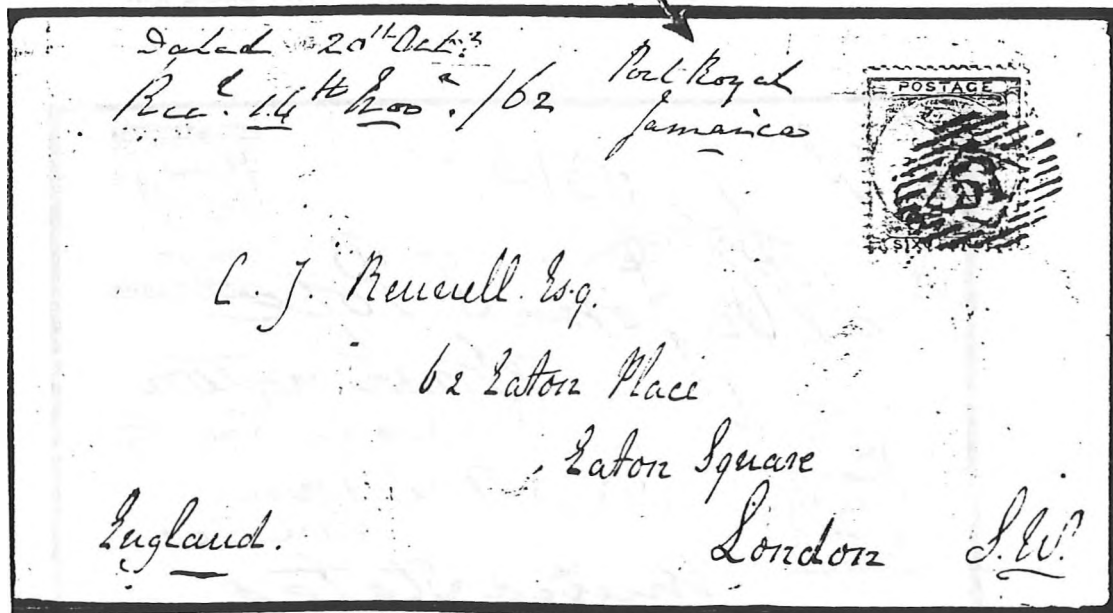 Dated 20th Octr
Recd. 14th Novr. /62
Port Royal
Jamaica
POSTAGE
SIX
C. J. Reuerell. Esq.
62 Eaton Place
Eaton Square
London S.W.
England.